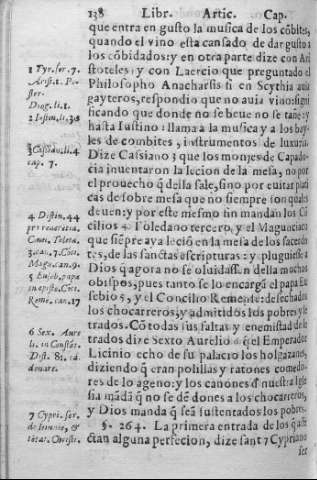 138 Libr. Artic. Cap.
que entra en gusto la musica de los cõbites,
quando el vino esta cansado de dar gusto a
los cõbidados: y en otra parte dize con Ari
stoteles: y con Laercio que preguntado el
Philosopho Anacharsis si en Scythia auia
gayteros, respondio que no auia vino: signi
ficando que donde no se beue no se tañe: y
hasta Iustino 2 llama a la musica y a los bay-
les de combites, instrumentos de luxuria.
Dize Cassiano 3 que los monjes de Capado-
cia inuentaron la lecion de la mesa, no por
el prouecho q̃ della sale, sino por euitar plati
cas de sobre mesa que no siempre son quales
deuen: y por este mesmo fin mandan los Cõ
cilios 4 Toledano tercero, y el Maguntiaco
que siẽpre aya leciõ en la mesa de los sacerdo
tes, de las sanctas escripturas: y pluguiesse a
Dios q̃ agora no se oluidassẽ della muchos
obispos, pues tanto se lo encargã el papa Eu
sebio 5, y el Concilio Remense: desechados
los chocarreros, y admitidos los pobres y le-
trados. Cõ todas sus faltas y enemistad de le-
trados dize Sexto Aurelio 6 q̃ el Emperador
Licinio echo de su palacio los holgazanes,
diziendo q̃ eran polillas y ratones comedo-
res de lo ageno: y los canones 6 de nuestra Igle
sia mãdã q̃ no se dẽ dones a los chocarreros,
y Dios manda q̃ seã sustentados los pobres.
§. 264. La primera entrada de los q̃ affe
ctan alguna perfecion, dize sant 7 Cypriano
ser
1 Tyr. ser. 7.
Arist. 1. Po-
ster.
Diog. li. 1.
2 Iustin. li. 30
3 Cassia. li. 4
cap. 7.
4 Distin. 44
pro reuerētia.
Conc. Toleta.
3. can. 7. Cōc.
Magu. can. 9.
5 Euseb. papa
in episto. Cōc.
Reme. can. 17
6 Sex. Aure
li. in Constāt.
Dist. 86. cā.
donare.
7 Cypri. ser.
de ieiunio, &
tētat. Christi.